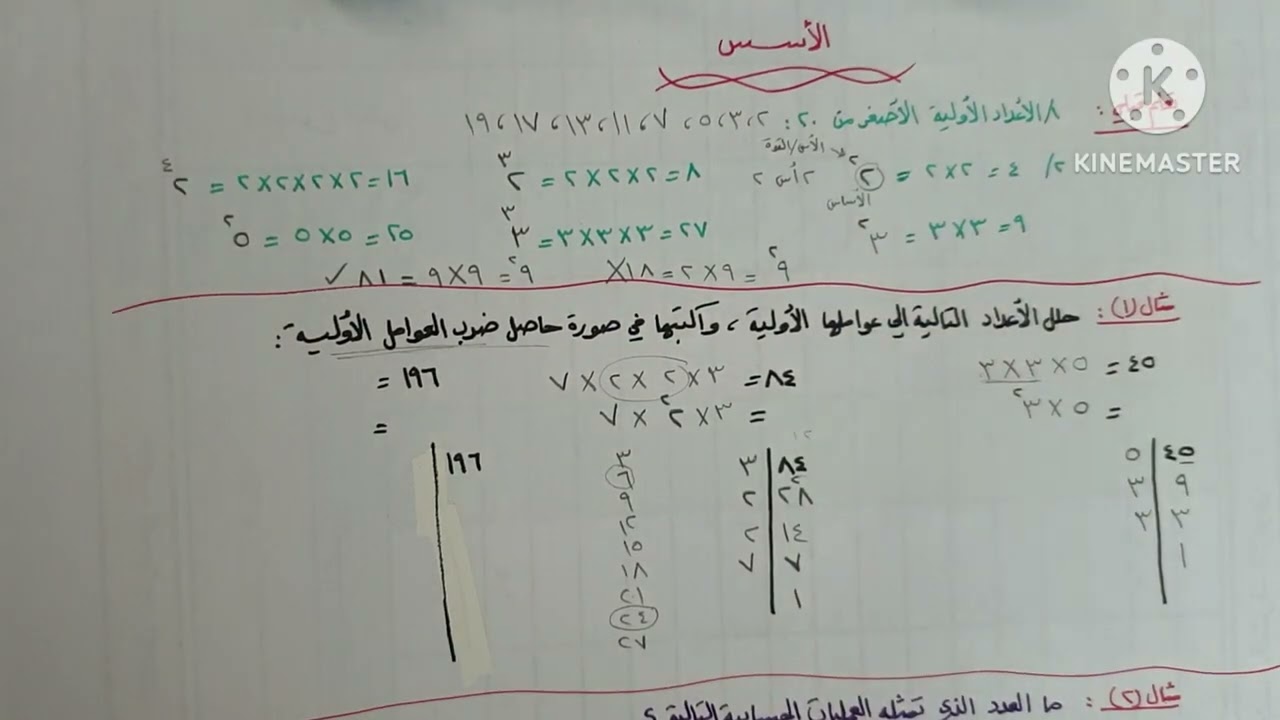 الأسس
١/ الأعداد الأولية الأصغر من ٢٠ : ٢، ٣، ٥، ٧، ١١، ١٣، ١٧، ١٩
KINEMASTER
الأس/القوة
٢/ ٤ = ٢ × ٢ = ٢² ٢ أس ٢
الأساس
٨ = ٢ × ٢ × ٢ = ٢³
١٦ = ٢ × ٢ × ٢ × ٢ = ٢⁴
٩ = ٣ × ٣ = ٣²
٢٧ = ٣ × ٣ × ٣ = ٣³
٢٥ = ٥ × ٥ = ٥²
٩² = ٩ × ٢ = ١٨ ×
٩² = ٩ × ٩ = ٨١ ✓
مثال (١) : حلل الأعداد التالية إلى عواملها الأولية ، واكتبها في صورة حاصل ضرب العوامل الأولية :
٤٥ = ٥ × ٣ × ٣
= ٥ × ٣²
٨٤ = ٣ × ٢ × ٢ × ٧
= ٣ × ٢² × ٧
١٩٦ =
=
٤٥ | ٥
٩ | ٣
٣ | ٣
١
٨٤ | ٣
٢٨ | ٢
١٤ | ٢
٧ | ٧
١
٣
٦
٩
١٢
١٥
١٨
٢١
٢٤
٢٧
١٩٦
مثال (٢) : ما العدد الذي تمثله العمليات الحسابية التالية ؟